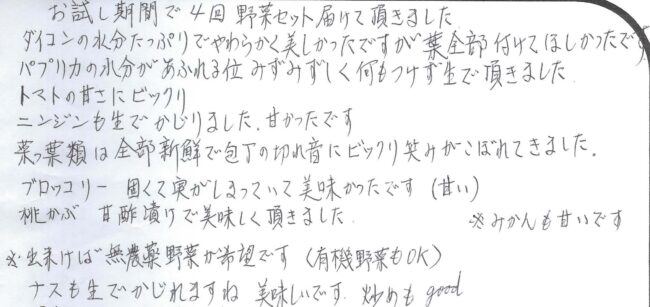 お試し期間で4回野菜セット届けて頂きました
ダイコンの水分たっぷりでやわらかく美しかったですが葉全部付けてほしかったです
パプリカの水分があふれる位みずみずしく何もつけず生で頂きました
トマトの甘さにビックリ
ニンジンも生でかじりました、甘かったです
菜っ葉類は全部新鮮で包丁の切れ音にビックリ笑みがこぼれてきました。
ブロッコリー 固くて実がしまっていて美味かったです (甘い)
桃かぶ 甘酢漬けで美味しく頂きました ※みかんも甘いです
※出来けば無農薬野菜が希望です (有機野菜もOK)
ナスも生でかじれますね 美味しいです、炒めも good